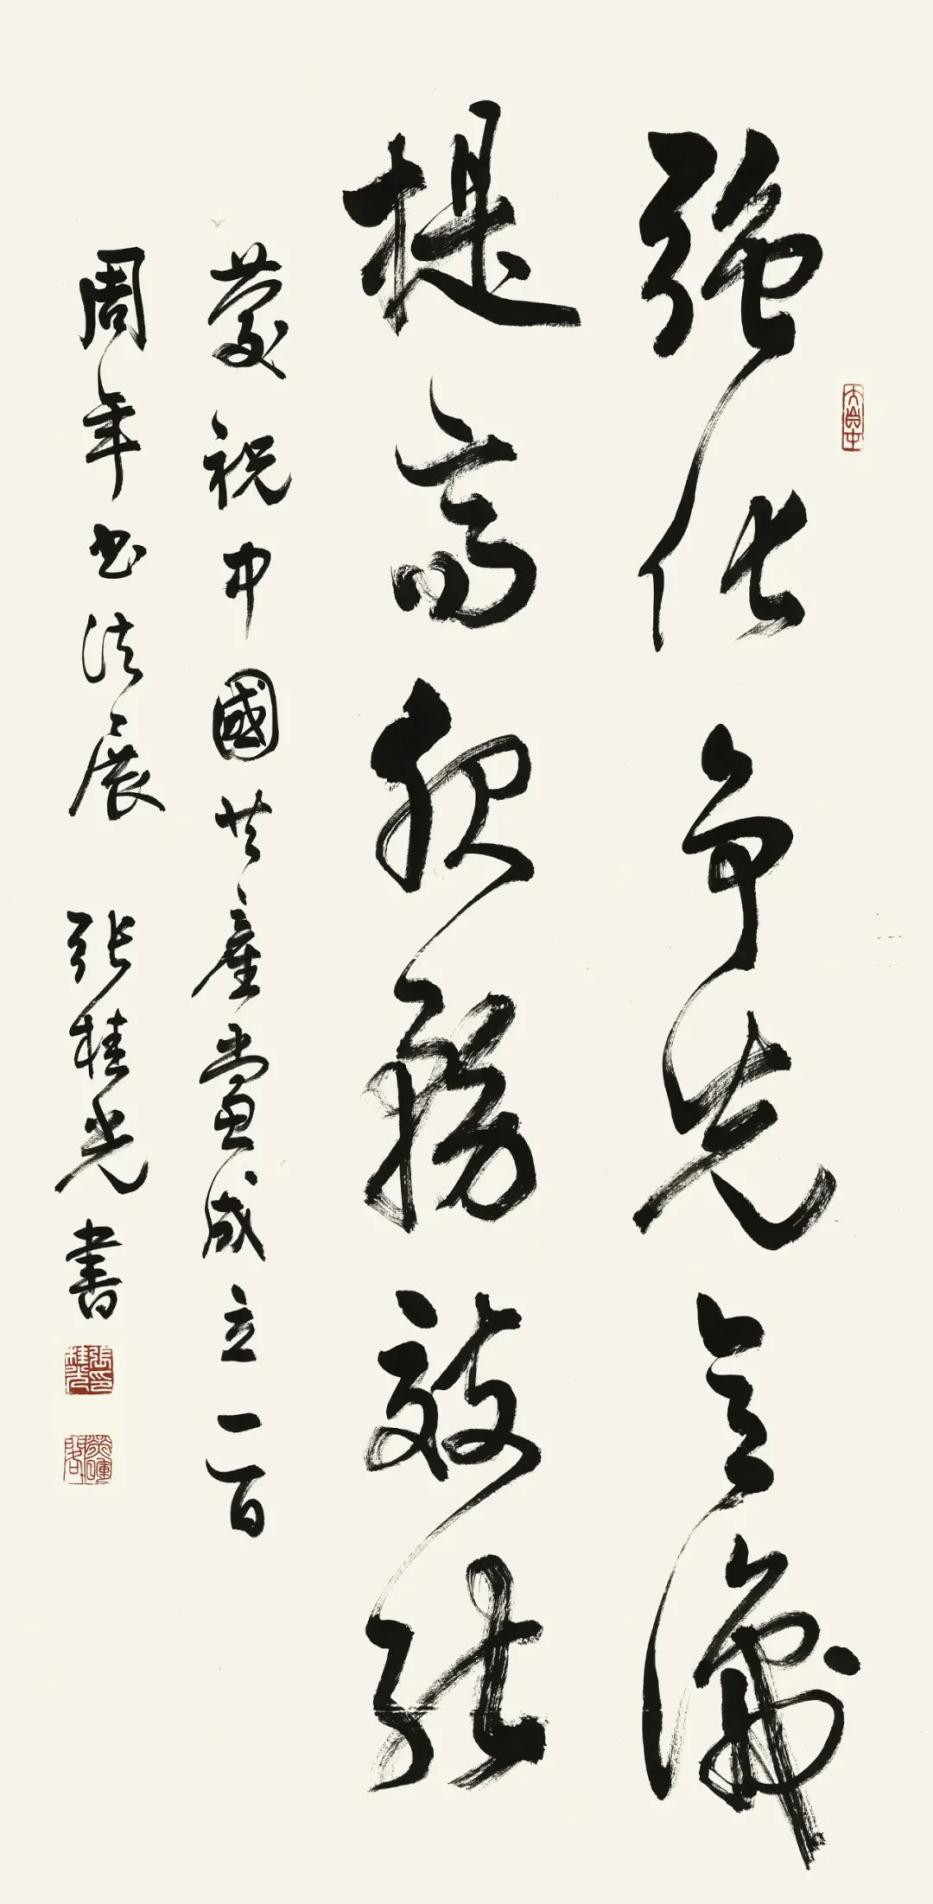 強化争先意識
提高服務效能
慶祝中國共產黨成立一百
周年书法展 張桂光書